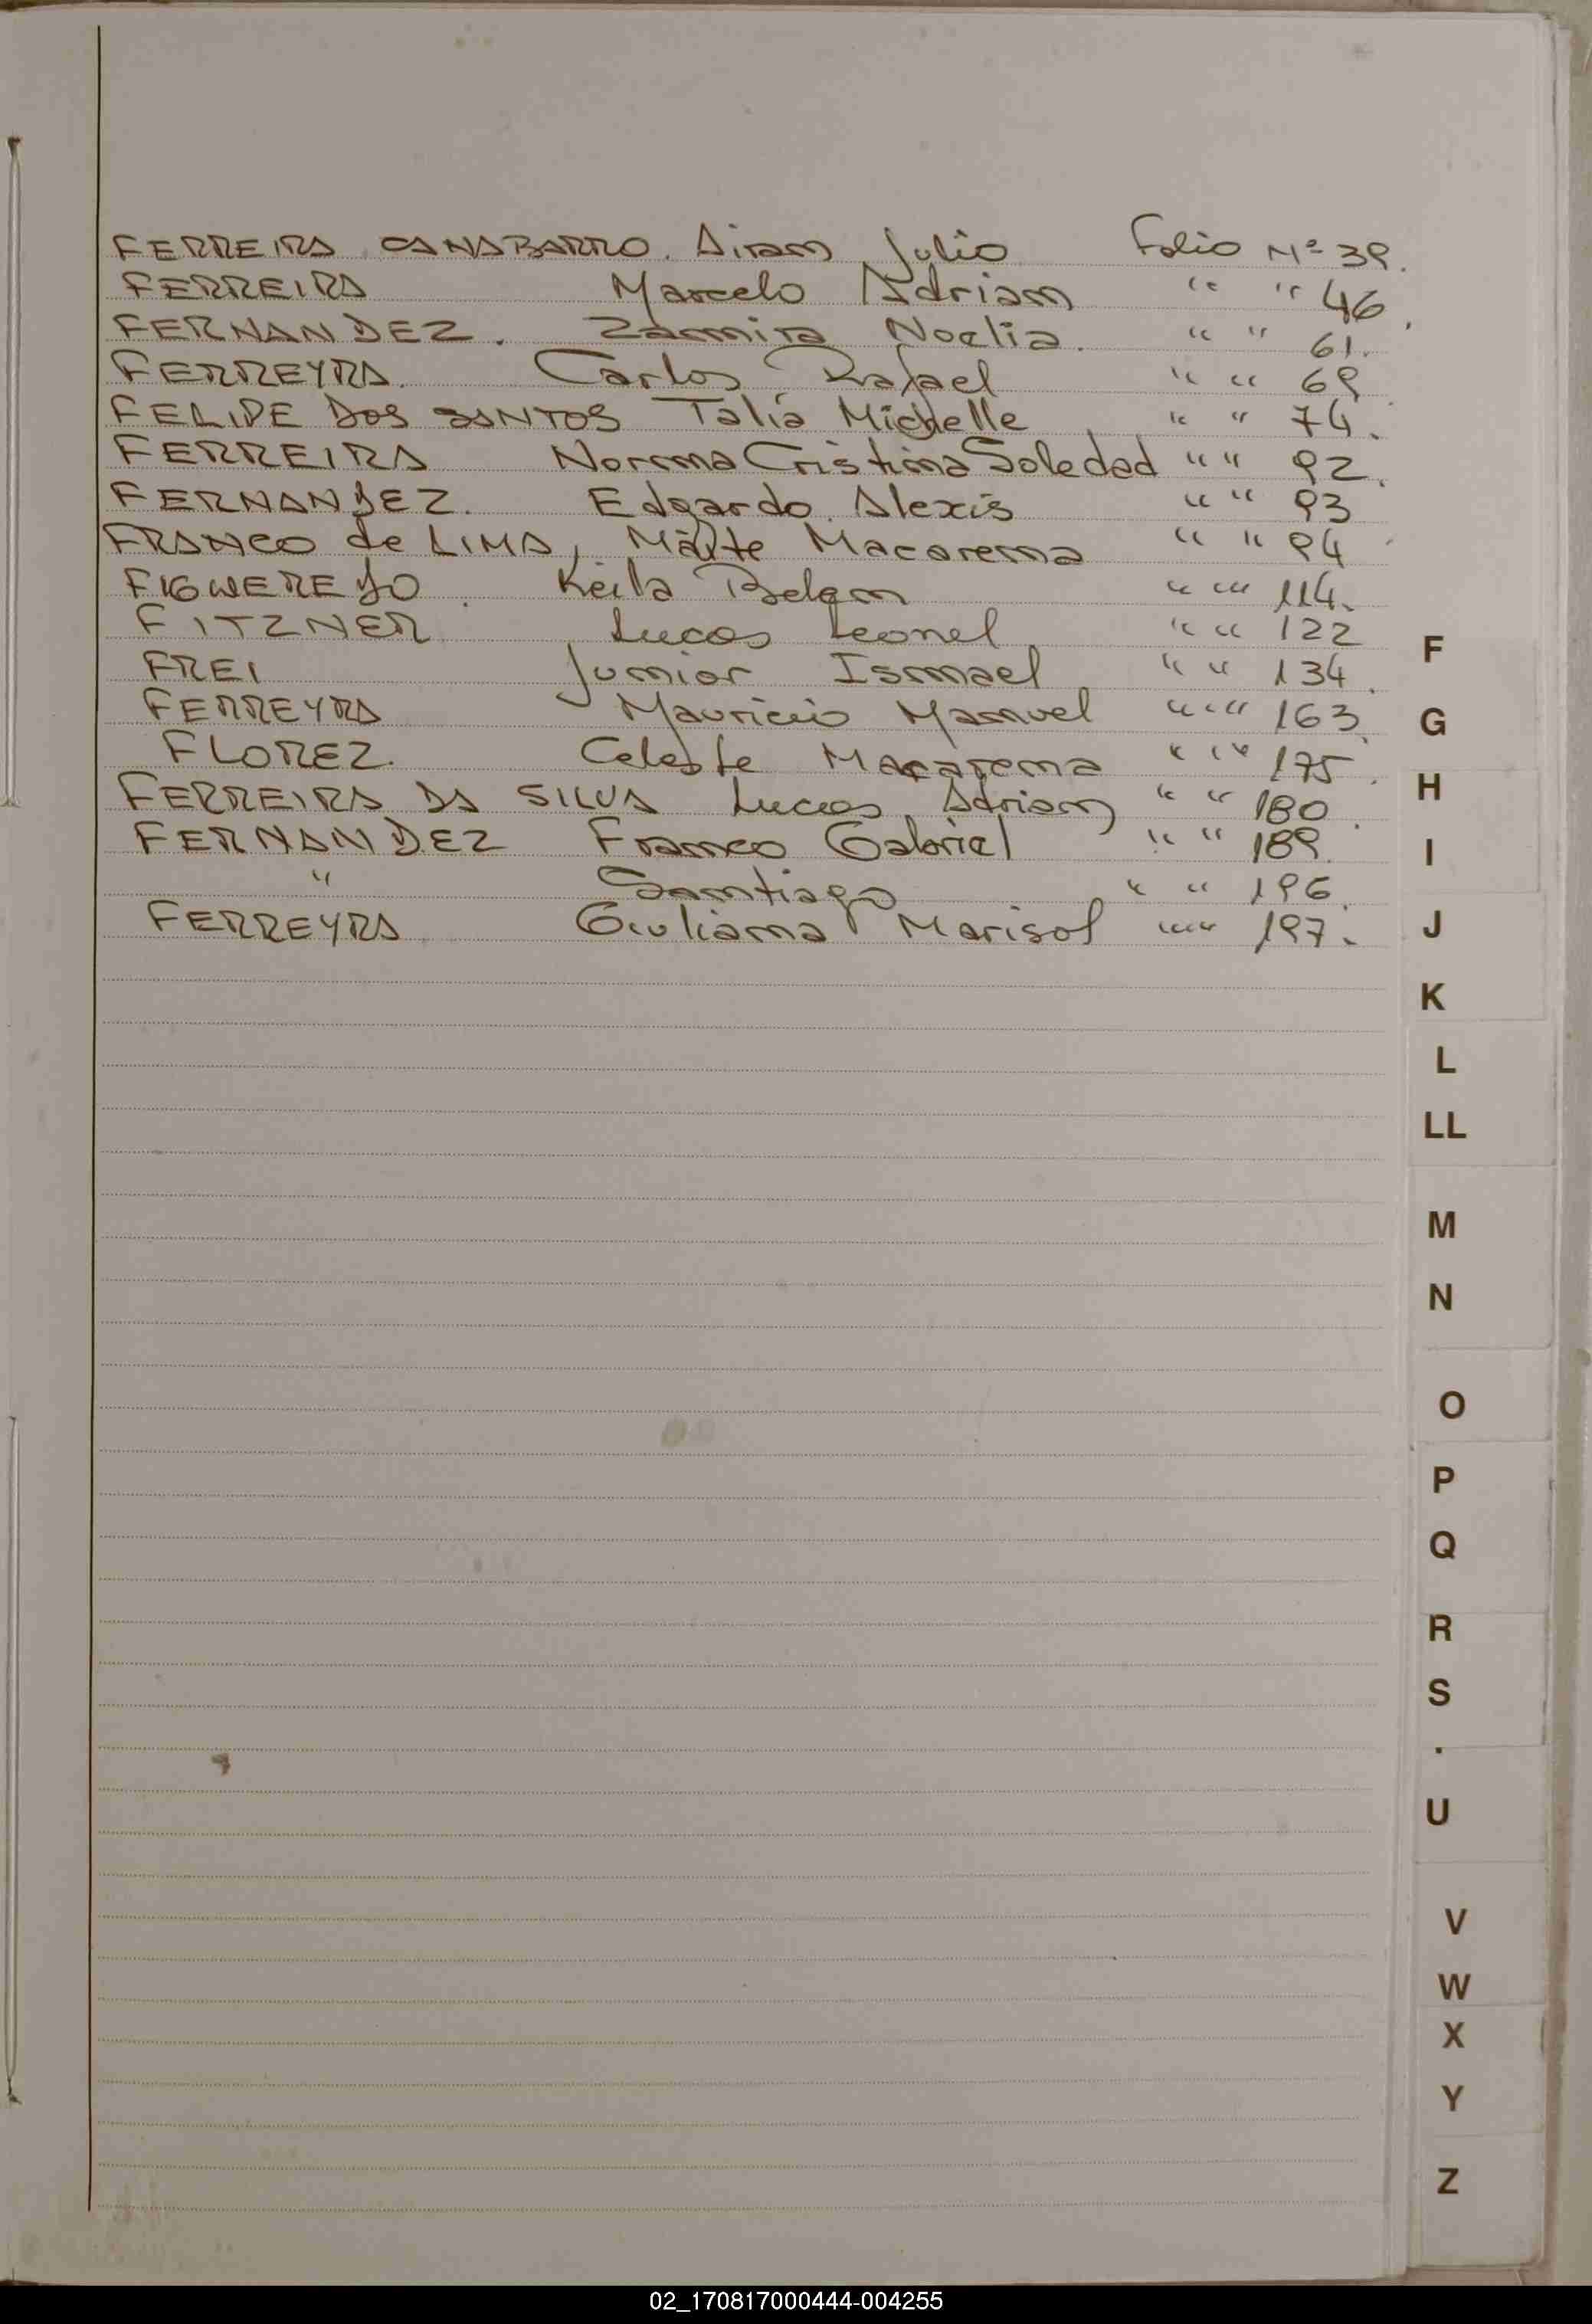 FERREIRA CANABARRO. Airam Julio Folio Nº 39.
FERREIRA Marcelo Adrian " " 46.
FERNANDEZ. Zamira Noelia. " " 61.
FERREYRA. Carlos Rafael " " 69
FELIPE DOS SANTOS Talía Michelle " " 74.
FERREIRA Norma Cristina Soledad " " 92.
FERNANDEZ. Edgardo Alexis " " 93
FRANCO de LIMA, Maite Macarena " " 94
FIGUEREDO. Keila Belen " " 114.
FITZNER Lucas Leonel " " 122
FREI Junior Ismael " " 134.
FERREYRA Mauricio Manuel " " 163.
FLOREZ. Celeste Macarena " " 175.
FERREIRA DA SILVA Lucas Adrian " " 180.
FERNANDEZ Franco Gabriel " " 189.
" Santiago " " 196.
FERREYRA Giuliana Marisol " " 197.
F
G
H
I
J
K
L
LL
M
N
O
P
Q
R
S
U
V
W
X
Y
Z
02_170817000444-004255